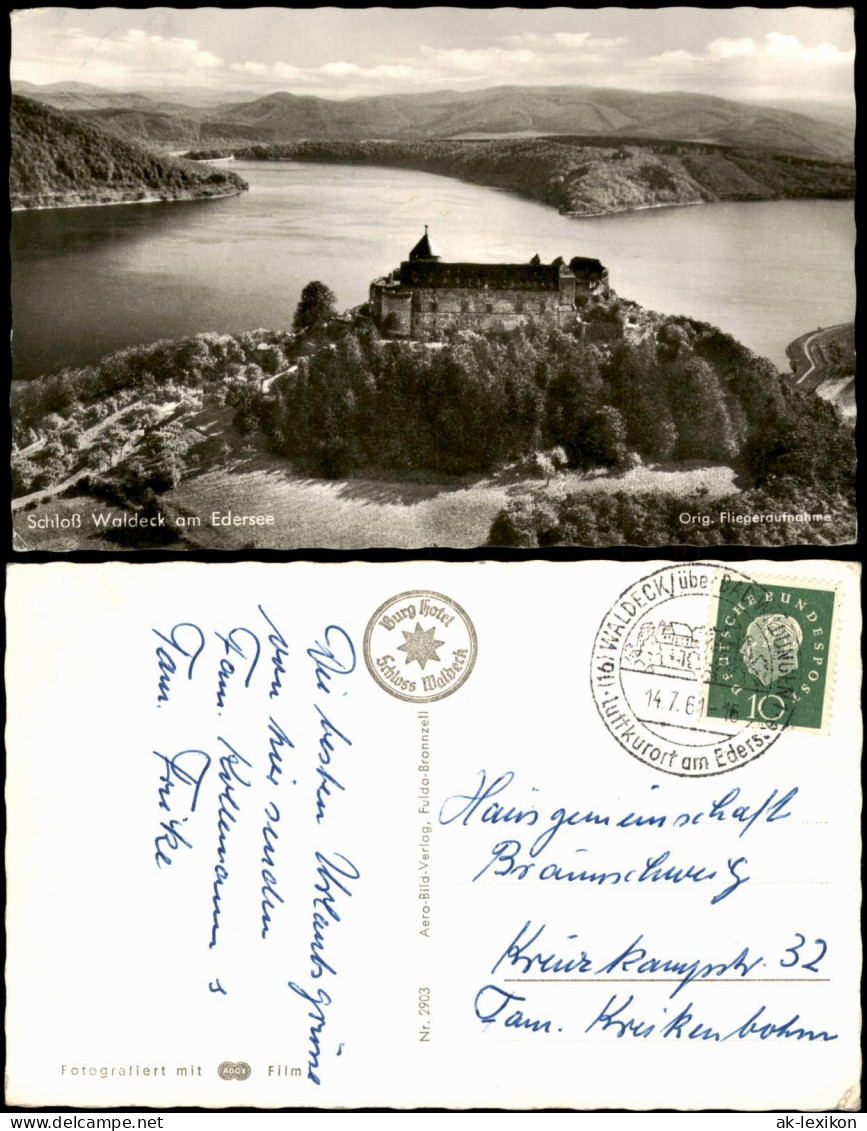 Schloß Waldeck am Edersee
Orig. Fliegeraufnahme
Die besten Urlaubsgrüße
von hier senden
Fam. Kollemann s
Fam. Fricke
Burg Hotel
Schloss Waldeck
(16) WALDECK/über BAD WILDUNGEN
14.7.61-16
Luftkurort am Edersee
DEUTSCHE BUNDESPOST
10
Hausgemeinschaft
Braunschweig
Kreuzkampstr. 32
Fam. Kreikenbohm
Aero-Bild-Verlag, Fulda-Bronnzell
Nr. 2903
Fotografiert mit ADOX Film
ak-lexikon